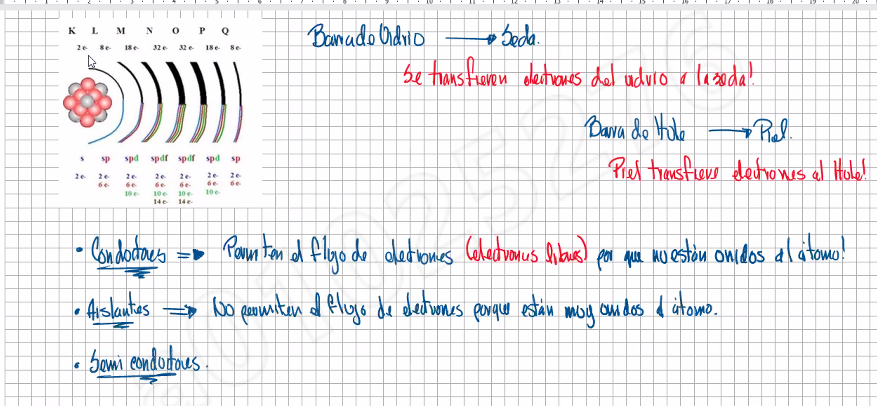 K L M N O P Q
2 e- 8 e- 18 e- 32 e- 32 e- 18 e- 8 e-
s sp spd spdf spdf spd sp
2 e- 2 e- 2 e- 2 e- 2 e- 2 e- 2 e-
6 e- 6 e- 6 e- 6 e- 6 e- 6 e-
10 e- 10 e- 10 e- 10 e-
14 e- 14 e-
Barra de Vidrio → Seda.
Se transfieren electrones del vidrio a la seda!
Barra de Hule → Piel.
Piel transfiere electrones al Hule!
• Conductores => Permiten el flujo de electrones (electrones libres) por que no están unidos al átomo!
• Aislantes => No permiten el flujo de electrones porque están muy unidos al átomo.
• Semi conductores.